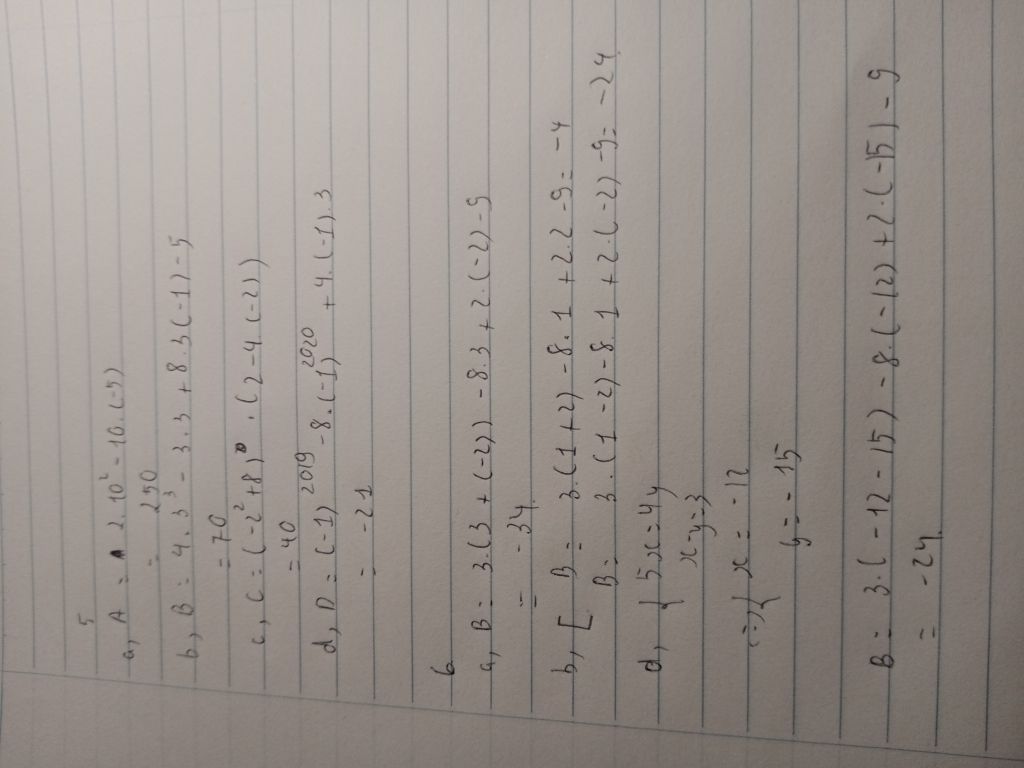 5
a, A = 2.10² - 10.(-5)
= 250
b, B = 4.3³ - 3.3 + 8.3(-1) - 5
= 70
c, C = (-2² + 8)⁰ . (2 - 4(-2))
= 40
d, D = (-1)²⁰¹⁹ - 8.(-1)²⁰²⁰ + 4.(-1).3
= -21
6
a, B = 3.(3 + (-2)) - 8.3 + 2.(-2) - 9
= -34
b, [ B = 3.(1+2) - 8.1 + 2.2 - 9 = -4
B = 3.(1-2) - 8.1 + 2.(-2) - 9 = -24
d, { 5x = 4y
x - y = 3
<=> { x = -12
y = -15
B = 3.(-12 - 15) - 8.(-12) + 2.(-15) - 9
= -24